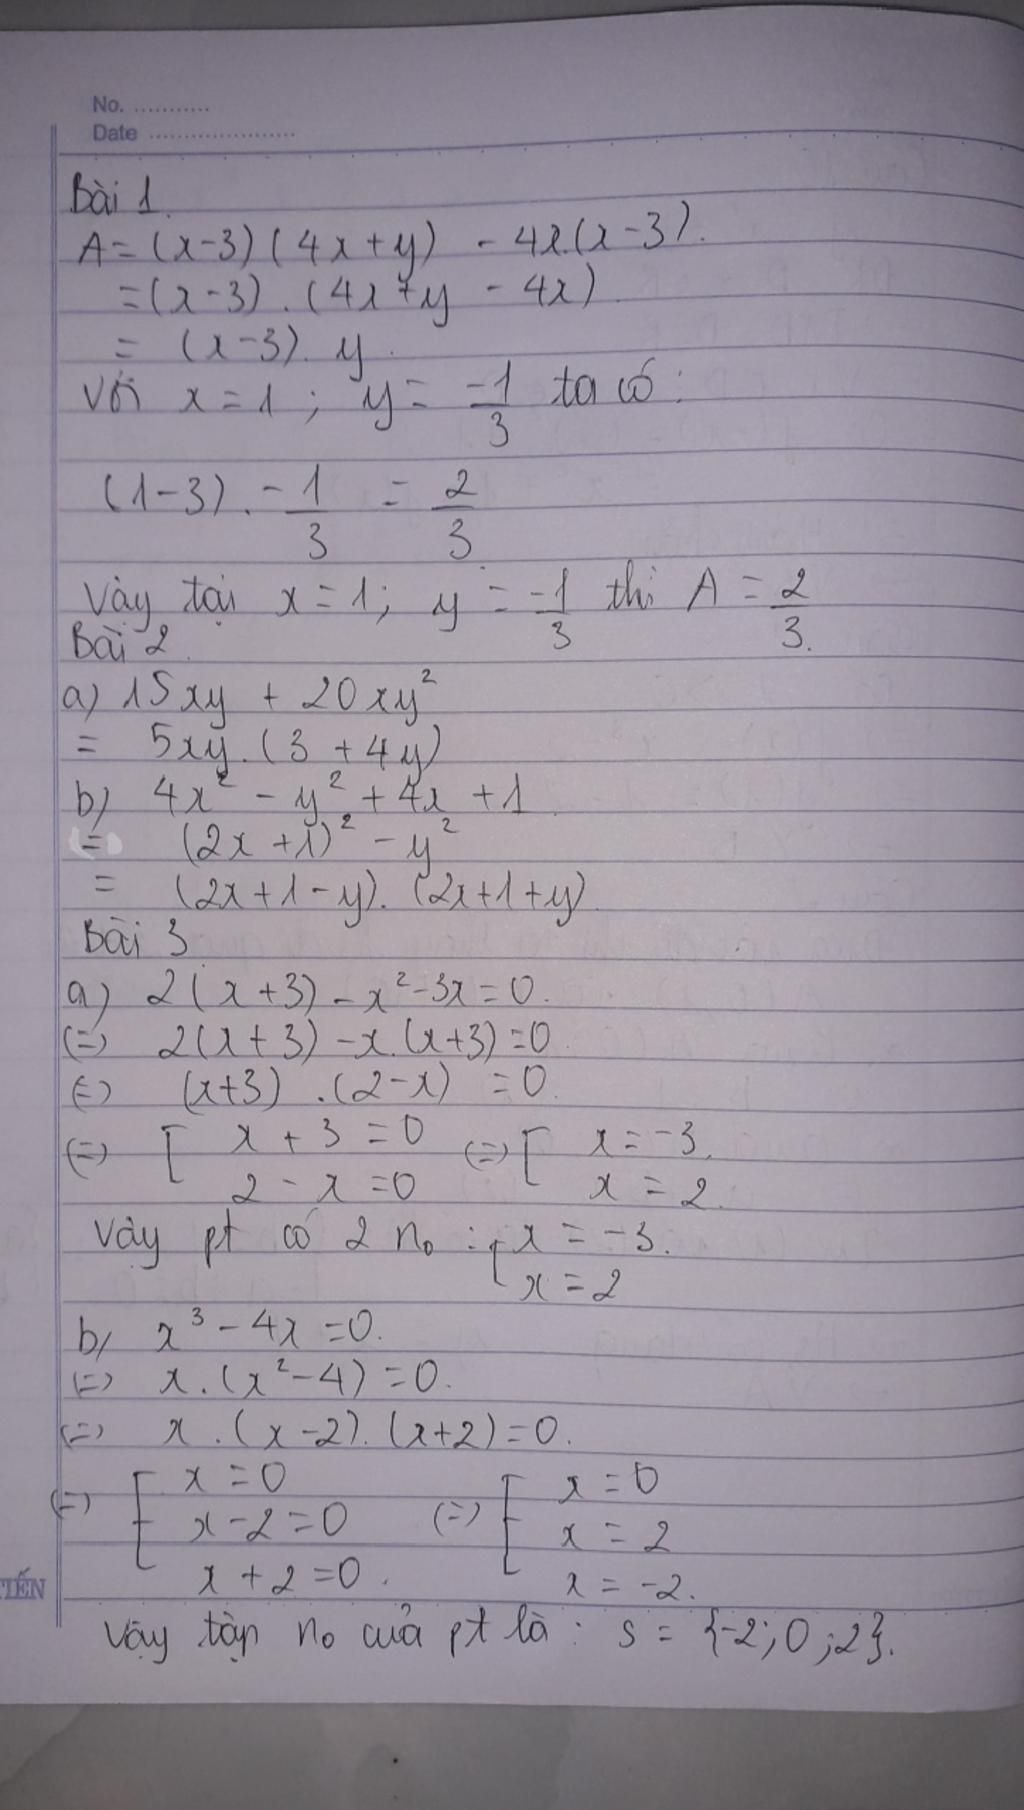 No. ...........
Date .....................
Bài 1.
A = (x-3)(4x+y) - 4x.(x-3).
= (x-3).(4x+y - 4x)
= (x-3).y.
Với x = 1; y = -1/3 ta có:
(1-3). -1/3 = 2/3
Vậy tại x = 1; y = -1/3 thì A = 2/3.
Bài 2
a) 15xy + 20xy²
= 5xy.(3 + 4y)
b) 4x² - y² + 4x + 1
= (2x+1)² - y²
= (2x+1-y).(2x+1+y)
Bài 3
a) 2(x+3) - x² - 3x = 0.
(=) 2(x+3) - x.(x+3) = 0
(=) (x+3).(2-x) = 0.
(=) [ x + 3 = 0 (=) [ x = -3.
2 - x = 0 x = 2.
Vậy pt có 2 no : [ x = -3.
x = 2
b) x³ - 4x = 0.
(=) x.(x²-4) = 0.
(=) x.(x-2).(x+2) = 0.
(=) [ x = 0 (=) [ x = 0
x - 2 = 0 x = 2
x + 2 = 0. x = -2.
TIẾN
Vậy tập no của pt là: S = {-2; 0; 2}.